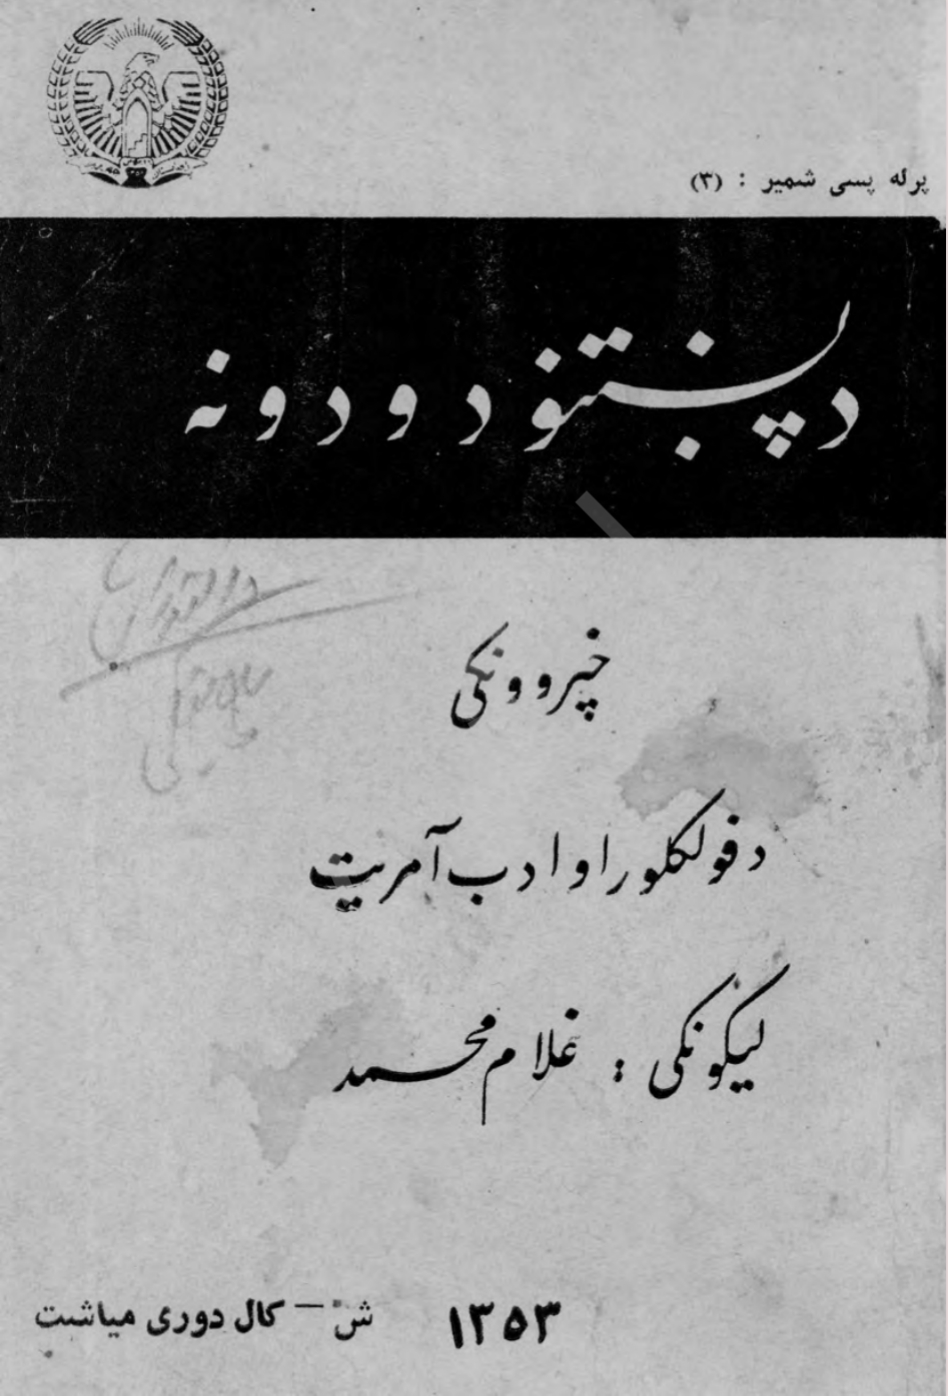 پرله پسی شمیر : (۳)
د پښتنو دودونه
خپروونکی
د فولکلور او ادب آمریت
لیکونکی : غلام محمد
۱۳۵۳ ش — کال دوری میاشت